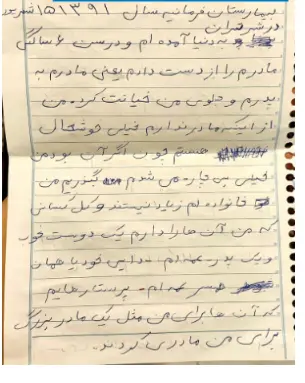 بیمارستان فرمانیه سال ۱۳۹۱ ۱۵ شهریور
در شهر تهران
به دنیا آمده ام و درست ۶ سالگی
مادرم را از دست دادم یعنی مادرم به
پدرم و جلوی من خیانت کرد. من
از اینکه مادر ندارم خیلی خوشحال
هستم چون اگر آن بود من
خیلی بی چاره می شدم بگذریم من
خانواده ام زیاد نیستند و کل کسانی
که من آن ها را دارم یک دوست خوب
و یک پدر دایی خود با همان
همسر پرستارهایم
که آن ها برای من مثل یک مادر بزرگ
برای من مادری کردند.